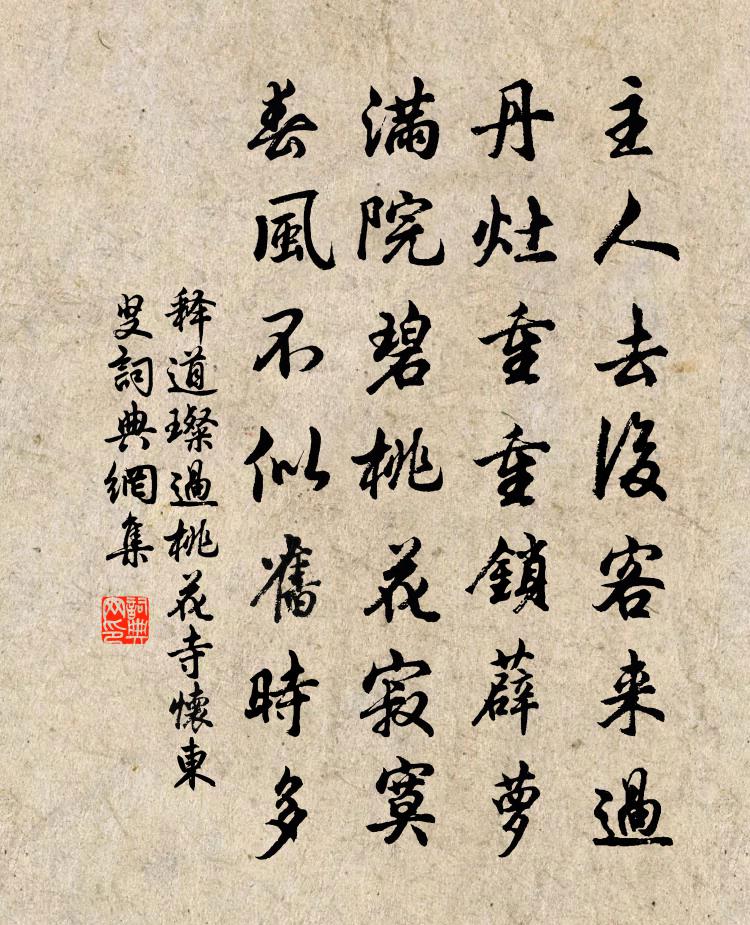 主人去後客来過
丹灶重重鎖薜萝
滿院碧桃花寂寞
春風不似舊時多
释道璨過桃花寺懷東
叟詞典網集
詞典网印